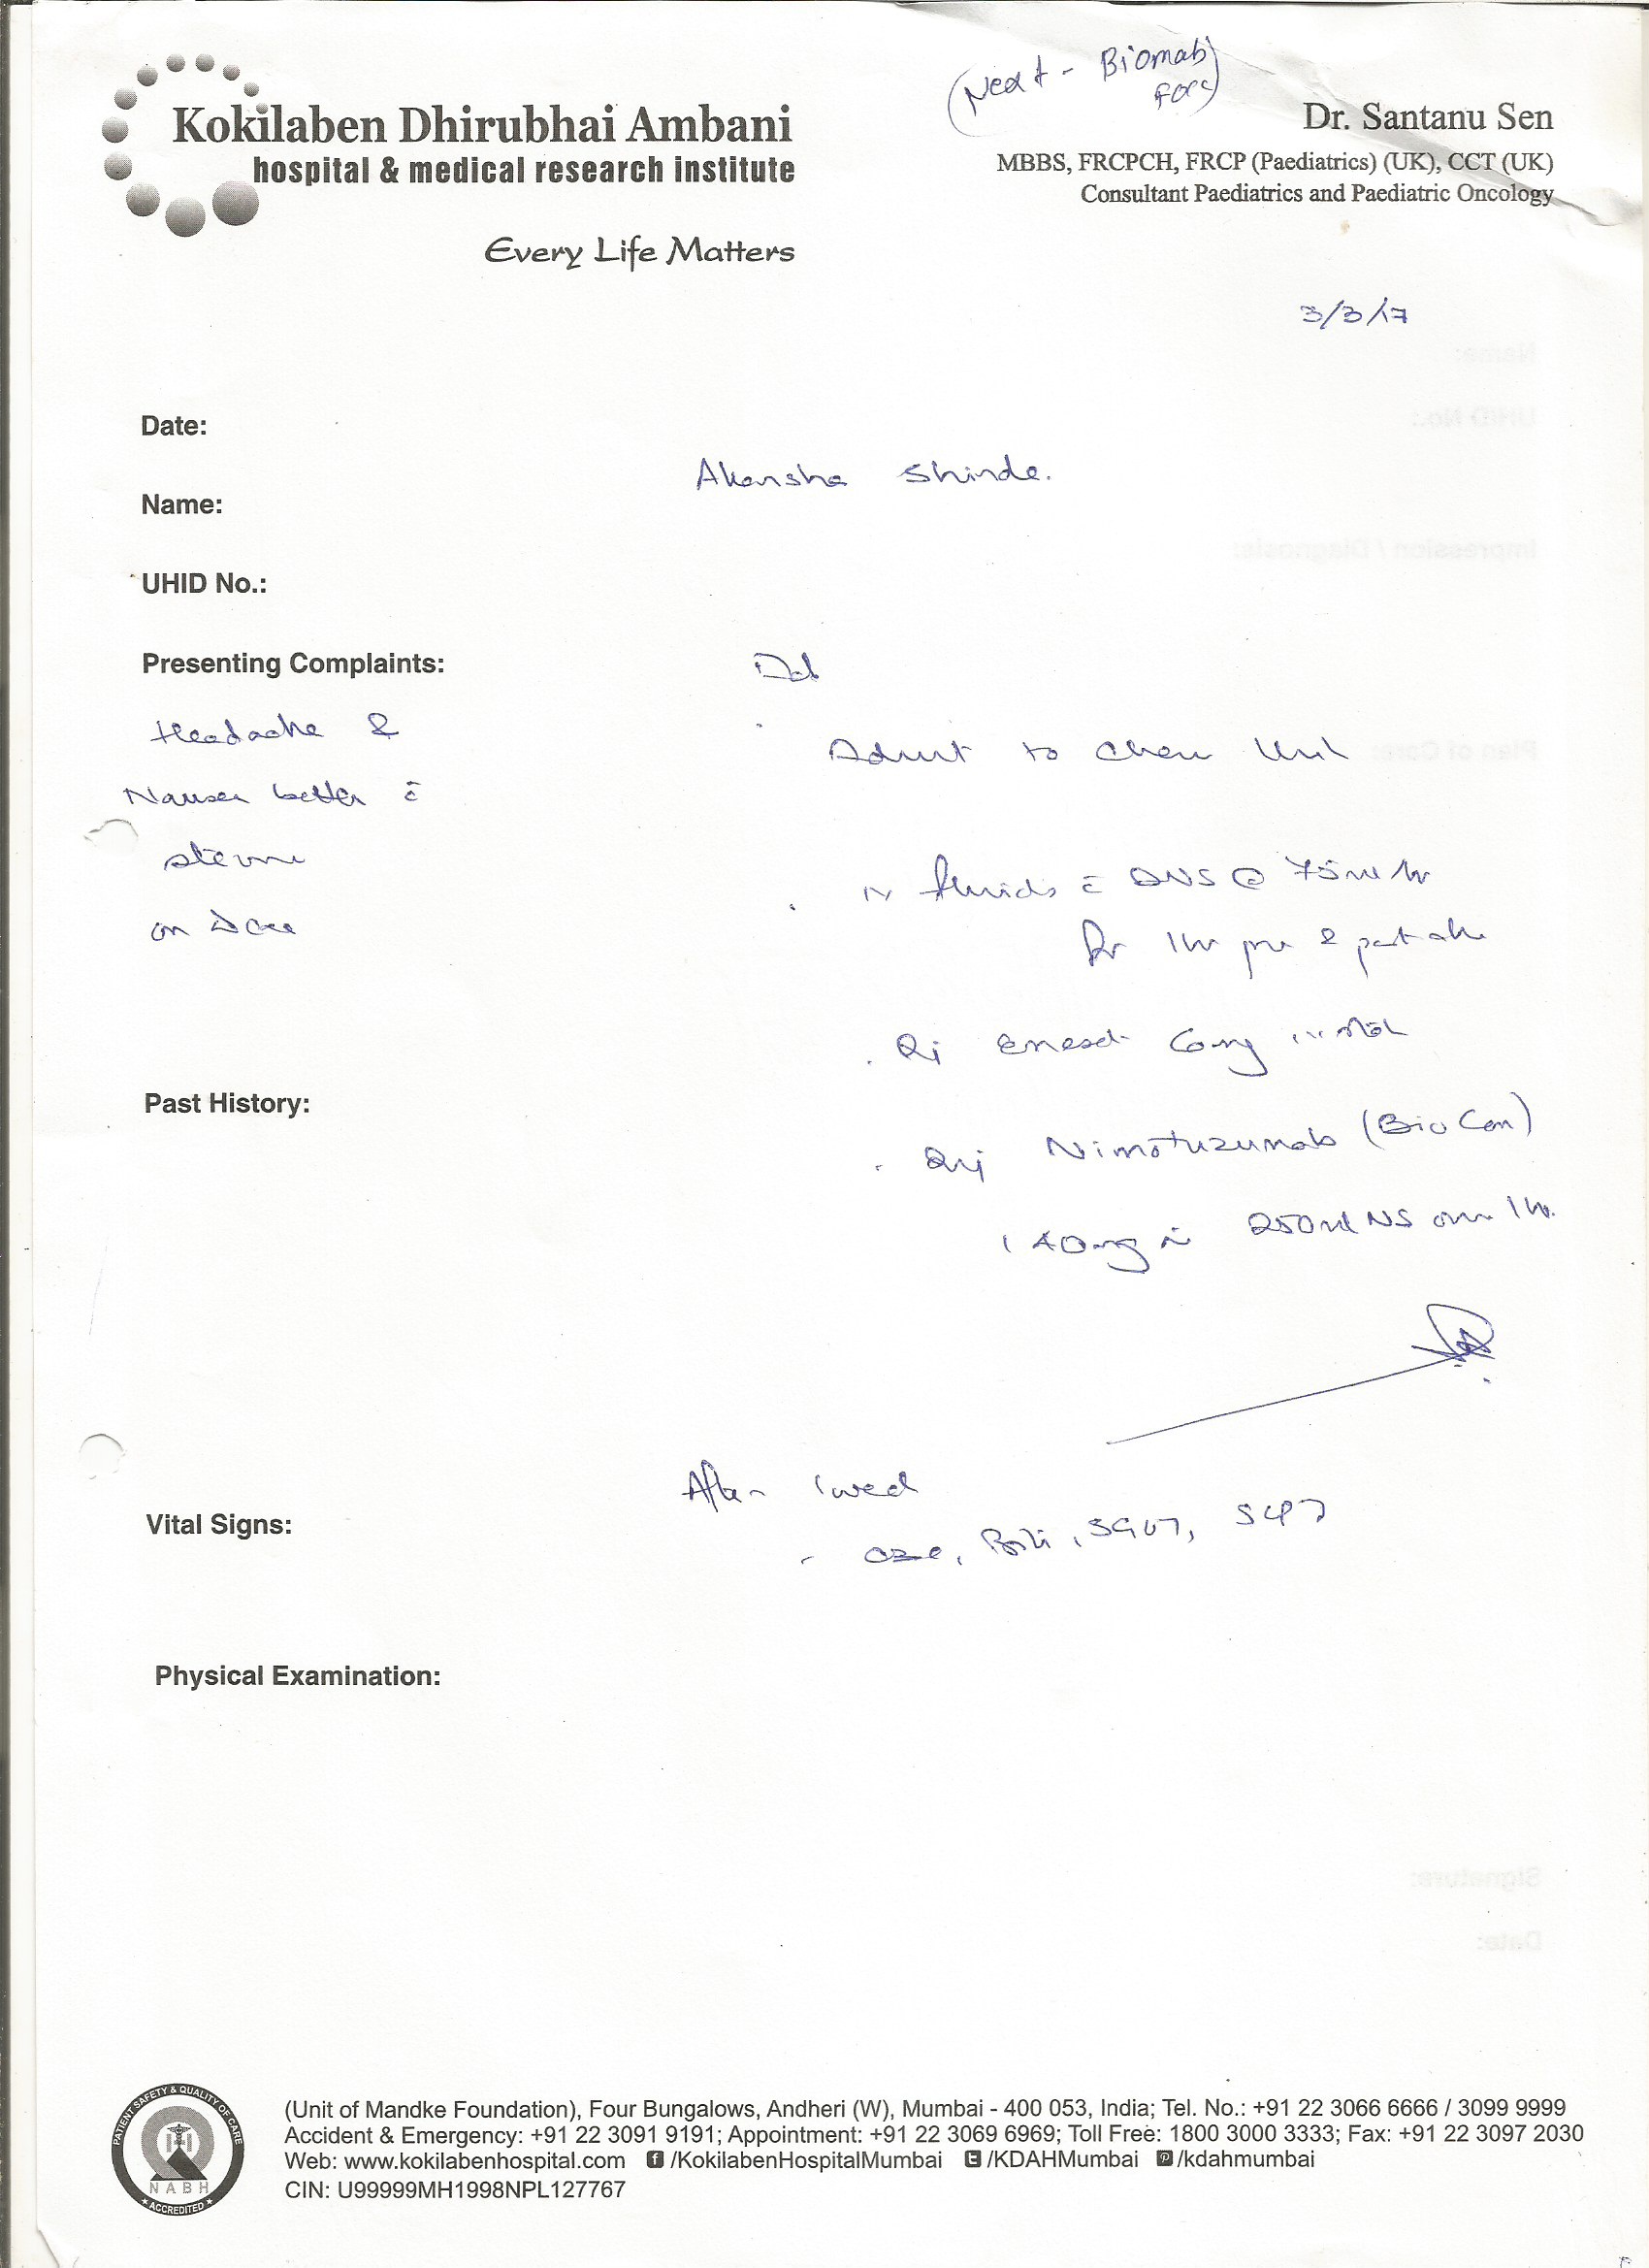 (Next - Biomab
Kokilaben Dhirubhai Ambani
hospital & medical research institute
Every Life Matters
Dr. Santanu Sen
MBBS, FRCPCH, FRCP (Paediatrics) (UK), CCT (UK)
Consultant Paediatrics and Paediatric Oncology
3/3/17
Date:
Akansha Shinde.
Name:
UHID No.:
Presenting Complaints:
Headache &
Nausea better c̄
on
Admit to Chemo Unit
IV fluids c̄ DNS @ 75ml/hr
for 1hr pre & post
Inj Emeset 6mg
Past History:
Inj Nimotuzumab (BioCon)
140mg in 250ml NS over 1hr.
After 1 week
Vital Signs:
- CBC, Bili, SGOT, SGPT
Physical Examination:
PATIENT SAFETY & QUALITY OF CARE
NABH
ACCREDITED
(Unit of Mandke Foundation), Four Bungalows, Andheri (W), Mumbai - 400 053, India; Tel. No.: +91 22 3066 6666 / 3099 9999
Accident & Emergency: +91 22 3091 9191; Appointment: +91 22 3069 6969; Toll Free: 1800 3000 3333; Fax: +91 22 3097 2030
Web: www.kokilabenhospital.com /KokilabenHospitalMumbai /KDAHMumbai /kdahmumbai
CIN: U99999MH1998NPL127767